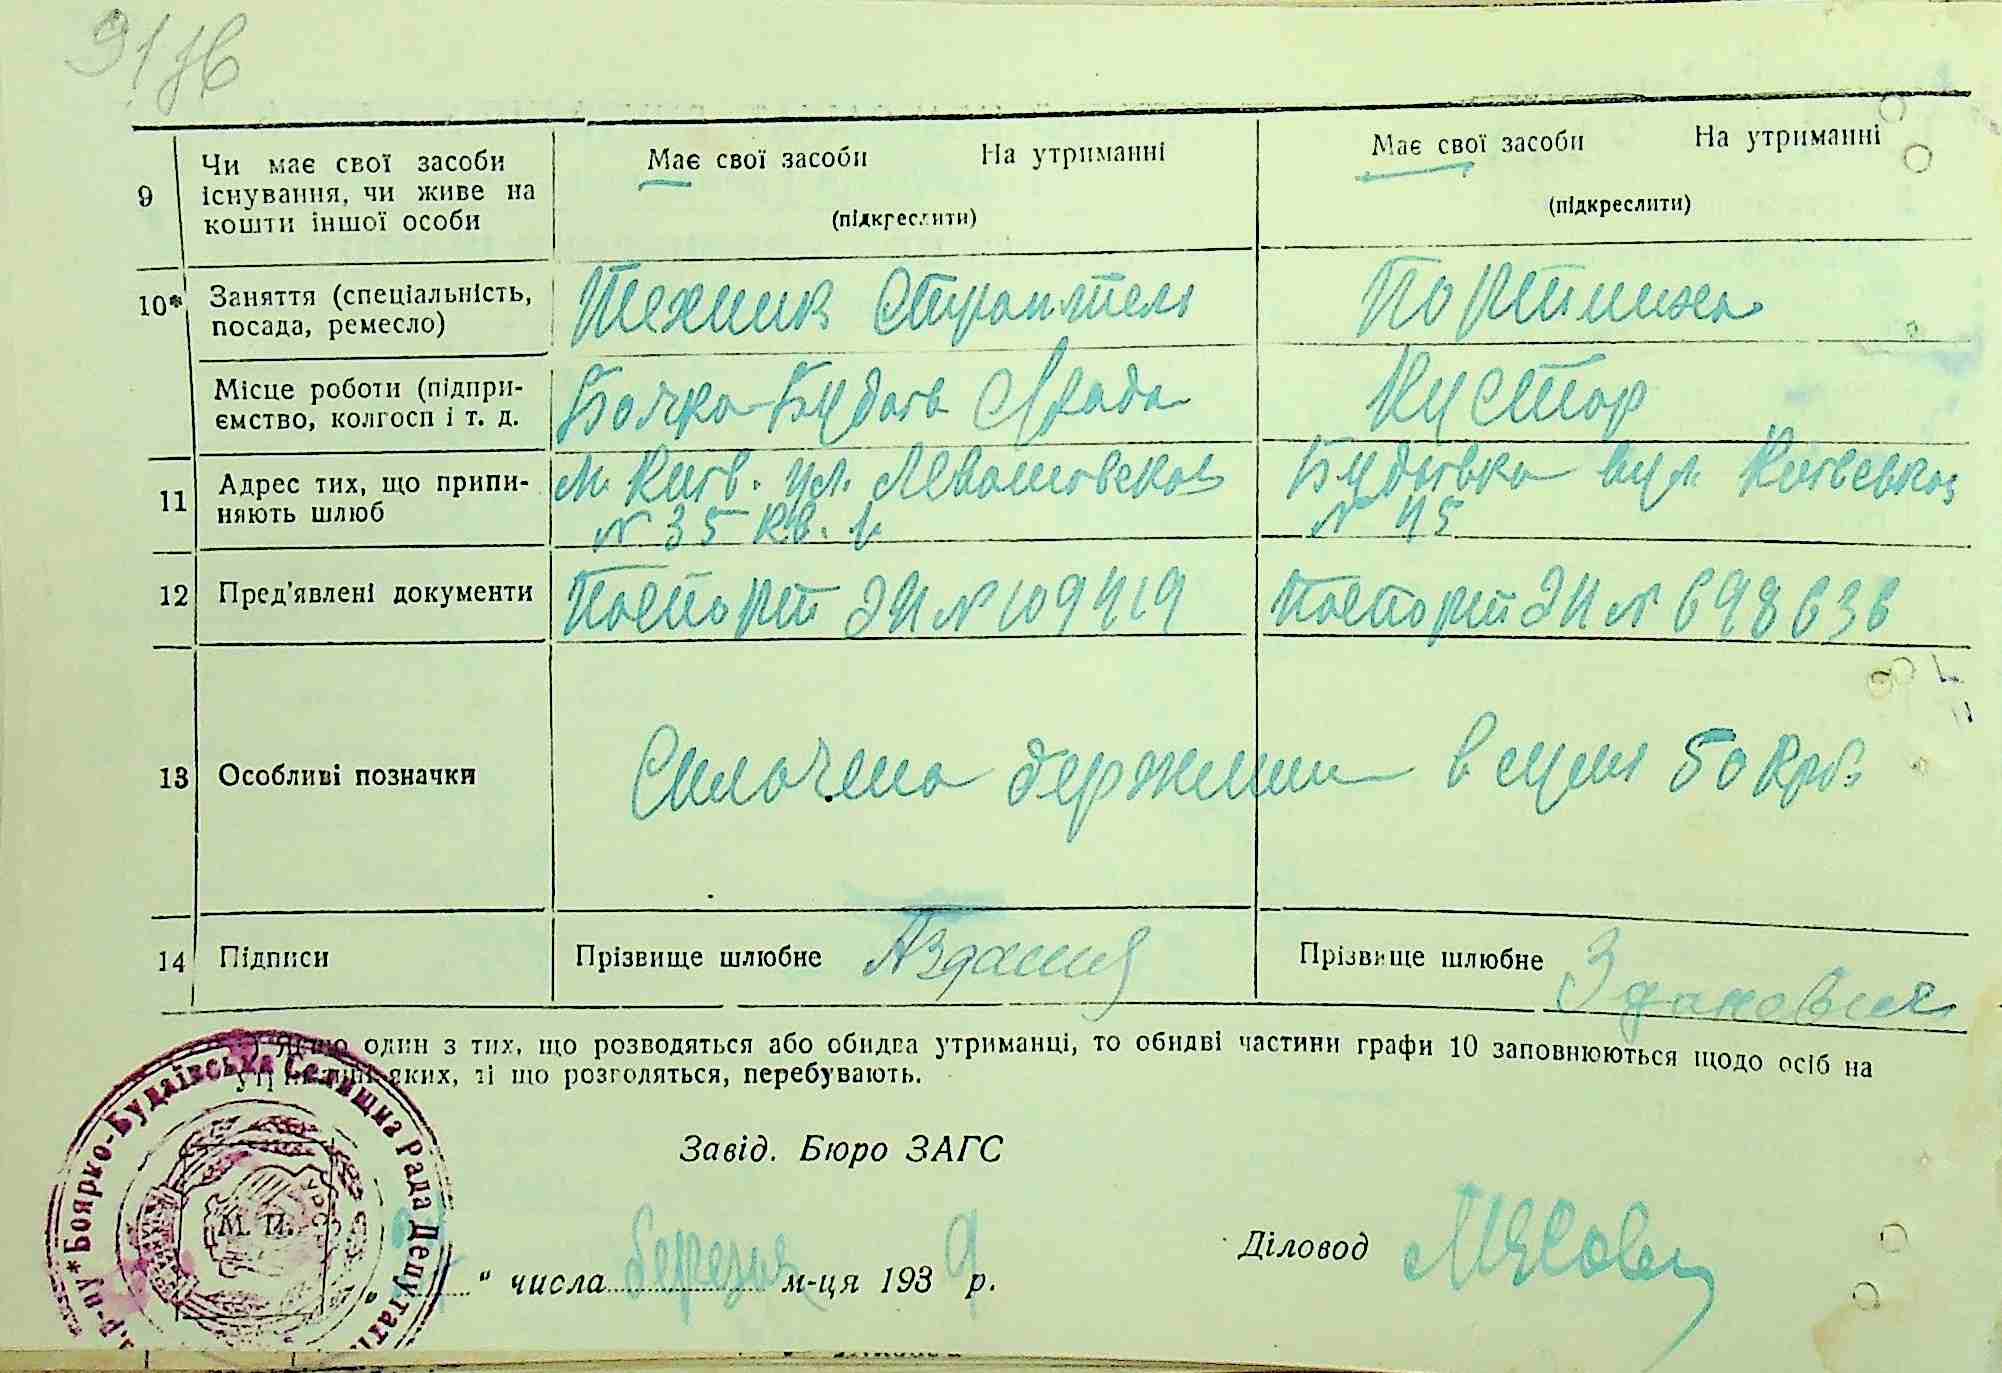 9
Чи має свої засоби
існування, чи живе на
кошти іншої особи
Має свої засоби На утриманні
(підкреслити)
Має свої засоби На утриманні
(підкреслити)
10*
Заняття (спеціальність,
посада, ремесло)
Техник Строитель
Портниха
Місце роботи (підпри-
ємство, колгосп і т. д.
Боярко-Будаев С/рада
Кустар
11
Адрес тих, що припи-
няють шлюб
м. Киів. ул. Левашовская
№ 35 кв. 1
Будаівка вул. Киівська
№ 45
12
Пред'явлені документи
Паспорт ЭИ № 109419
Паспорт ЭИ № 698636
13
Особливі позначки
Сплочено держмит в сумі 50 крб.
14
Підписи
Прізвище шлюбне
Прізвище шлюбне Зданович
один з тих, що розводяться або обидва утриманці, то обидві частини графи 10 заповнюються щодо осіб на
яких, ті що розводяться, перебувають.
Завід. Бюро ЗАГС
" числа березня м-ця 1939 р.
Діловод
Боярко-Будаївська Селищна Рада Депутатів
М. П.